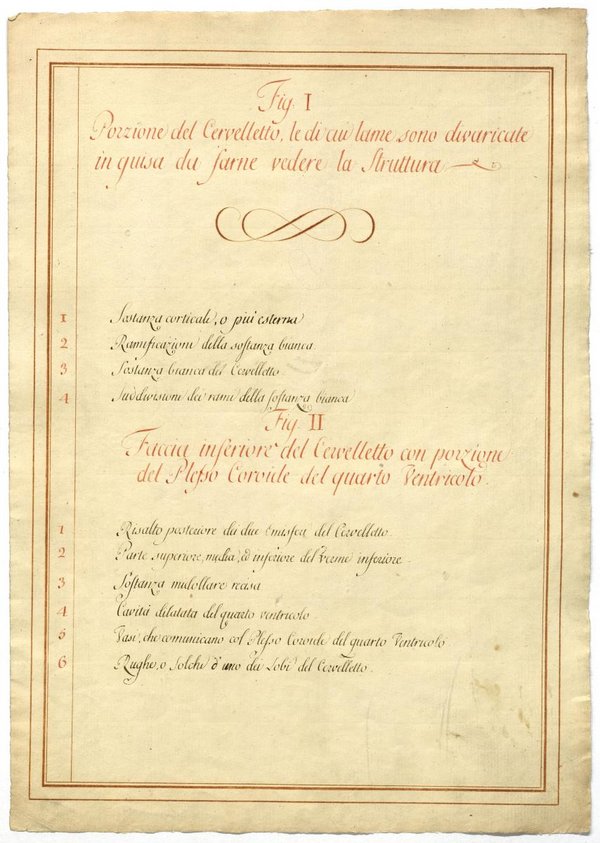 Fig. I
Porzione del Cervelletto, le di cui lame sono divaricate
in guisa da farne vedere la Struttura
1 Sostanza corticale, o piu' esterna
2 Ramificazioni della sostanza bianca.
3 Sostanza bianca del Cervelletto.
4 Suddivisioni dei rami della sostanza bianca
Fig. II
Faccia inferiore del Cervelletto con porzione
del Plesso Coroide del quarto Ventricolo.
1 Risalto posteriore dei due Emisferi del Cervelletto.
2 Parte superiore, media, ed inferiore del Verme inferiore.
3 Sostanza midollare recisa
4 Cavità dilatata del quarto ventricolo
5 Vasi, che comunicano col Plesso Coroide del quarto Ventricolo.
6 Rughe, o Solchi d'uno dei Lobi del Cervelletto.